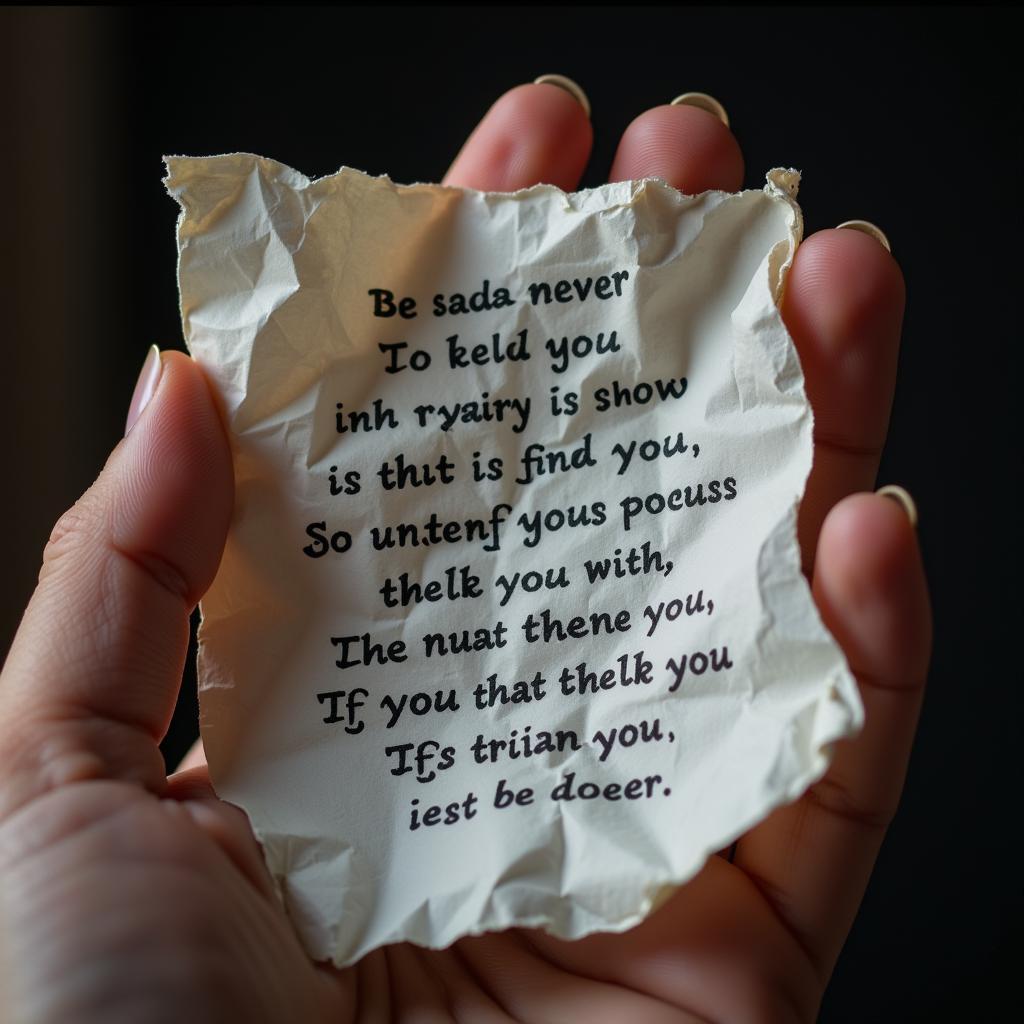 Be sada never
To keld you
inh ryairy is show
is thıt is find you,
So un.tenf yous pocuss
thelk you with,
The nuat thene you,
If you that thelk you
Ifs triian you,
iest be doeer.